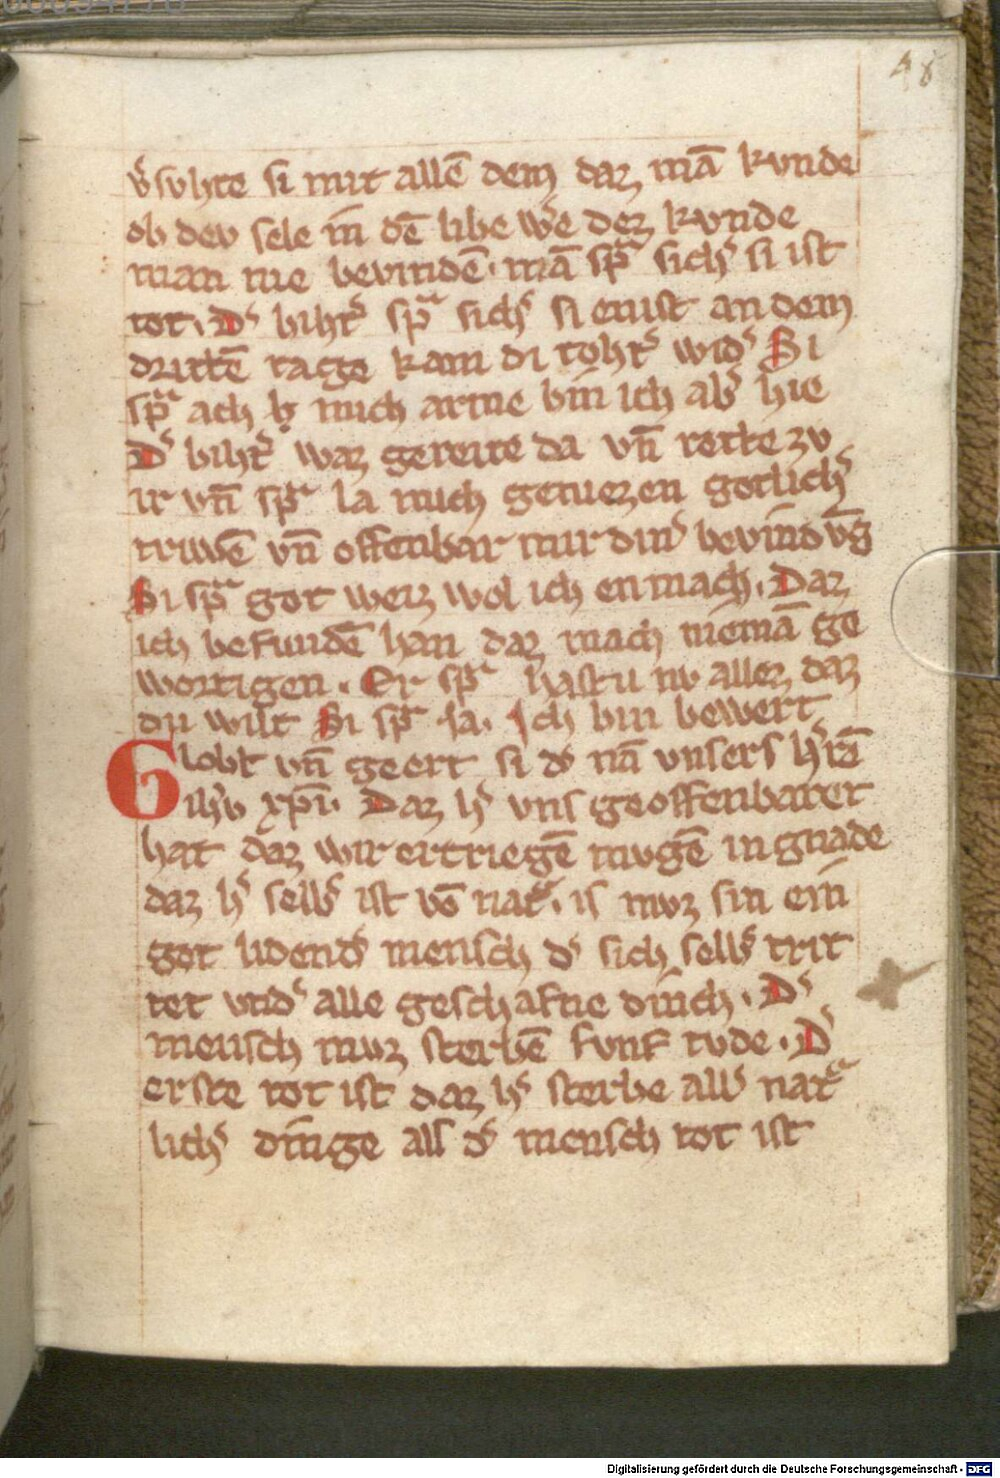 48
v̾suhte si mit allē dem daz mā kvnde
ob dev sele in dē libe we̾ dez kvnde
man nie bevindē · mā sp̄ͣ sich̾ si ist
tot · D̾ biht̾ sp̄ͣ sich̾ si enist an dem
drittē tage kam di toht̾ wid̾ Si
sp̄ͣ ach h̾ mich arme bin ich ab̾ hie
D̾ biht̾ waz gereite da vn̄ rette zv
ir vn̄ sp̄ͣ la mich geniezen gotlich̾
triwē vn̄ offenbar mir din̾ bevindv̄g
Si sp̄ͣ got weiz wol ich en mach · Daz
ich befundē han daz mach niemā ge
wortigen · Er sp̄ͣ hastu nv allez daz
du wilt Si sp̄ͣ ja · Ich bin bewert
Globt vn̄ geert si d̾ nā vnsers h̾rē
ih̾v xp̄i · Daz h̾ vns geoffenbaret
hat daz wir ertriegē mvgē in gnade
daz h̾ selb̾ ist vō nat̾ͣ · is mvz sin ein
got lidend̾ mensch d̾ sich selb̾ trit
tet vnd̾ alle geschafne dinch · D̾
mensch mvz sterbē fvnf tode · D̾
erste tot ist daz h̾ sterbe all̾ nat̾ͣ
lich̾ dinge als d̾ mensch tot ist
Digitalisierung gefördert durch die Deutsche Forschungsgemeinschaft - DFG